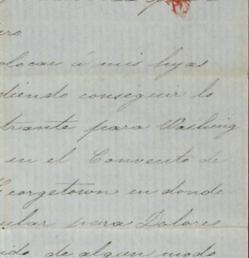 ero
olocar á mis hijas
diendo conseguir lo
trante para Washing
en el Convento de
Georgetown en donde
cular para Dolores
ido de algun modo